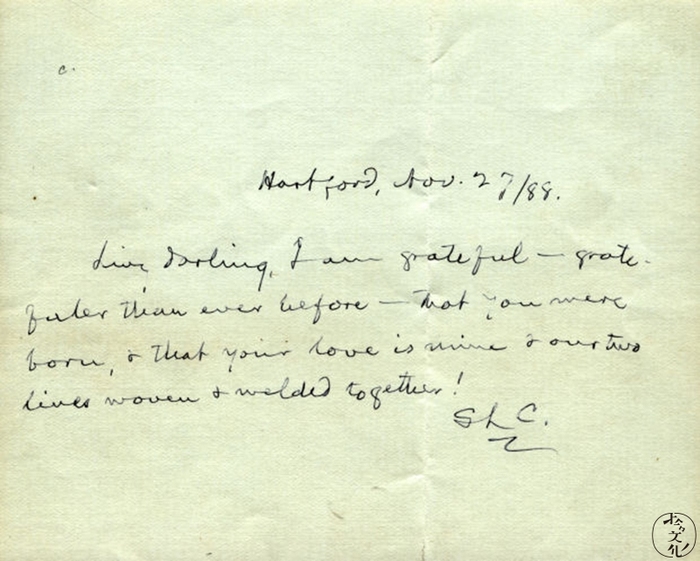 c.
Hartford, Nov. 27/88.
Livy darling, I am grateful — grate-
fuler than ever before — that you were
born, & that your love is mine & our two
lives woven & welded together!
SLC.